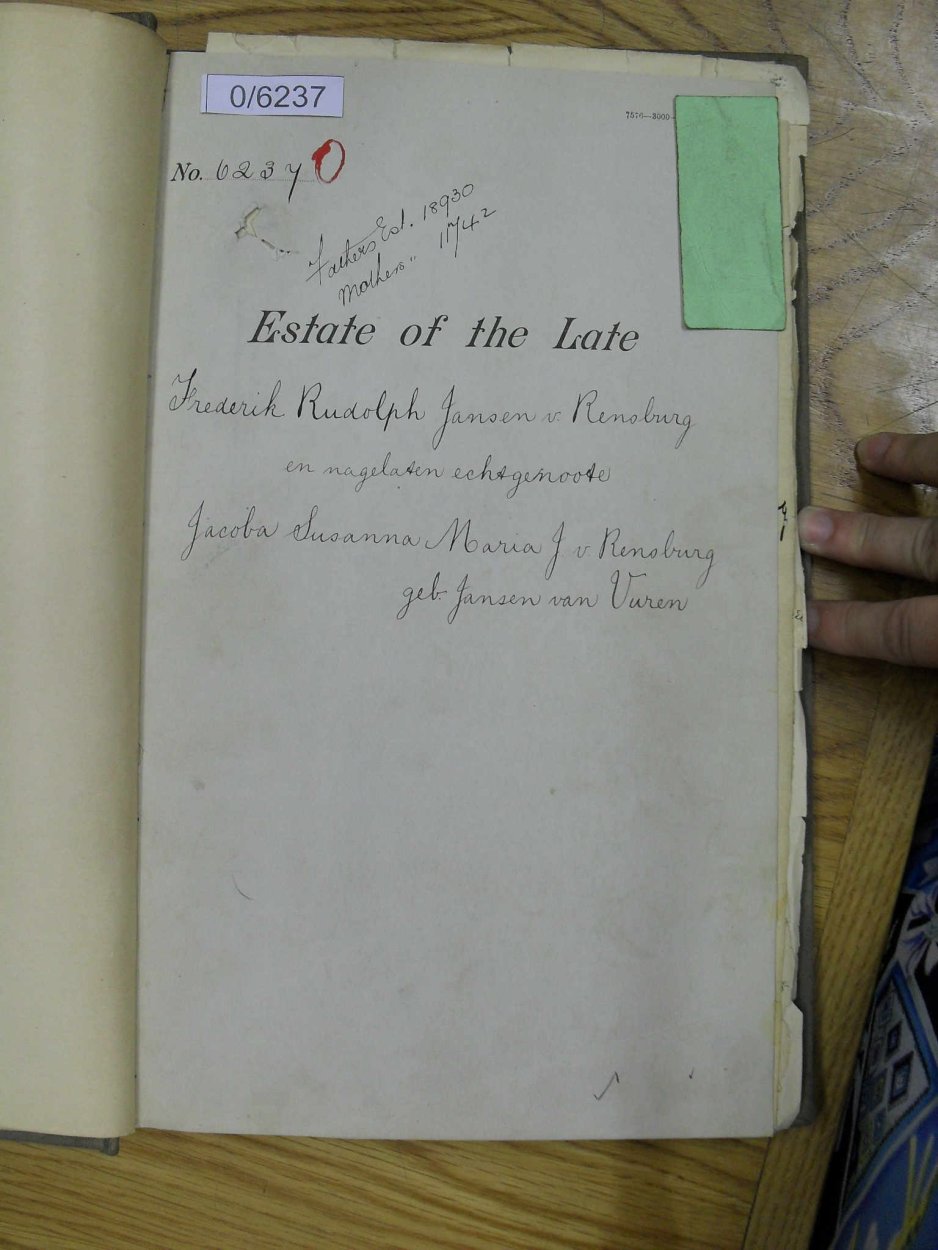 0/6237
7576—3000-
No. 6237 O
Fathers Est. 18930
Mothers " 11742
Estate of the Late
Frederik Rudolph Jansen v. Rensburg
en nagelaten echtgenoote
Jacoba Susanna Maria J v. Rensburg
geb. Jansen van Vuren